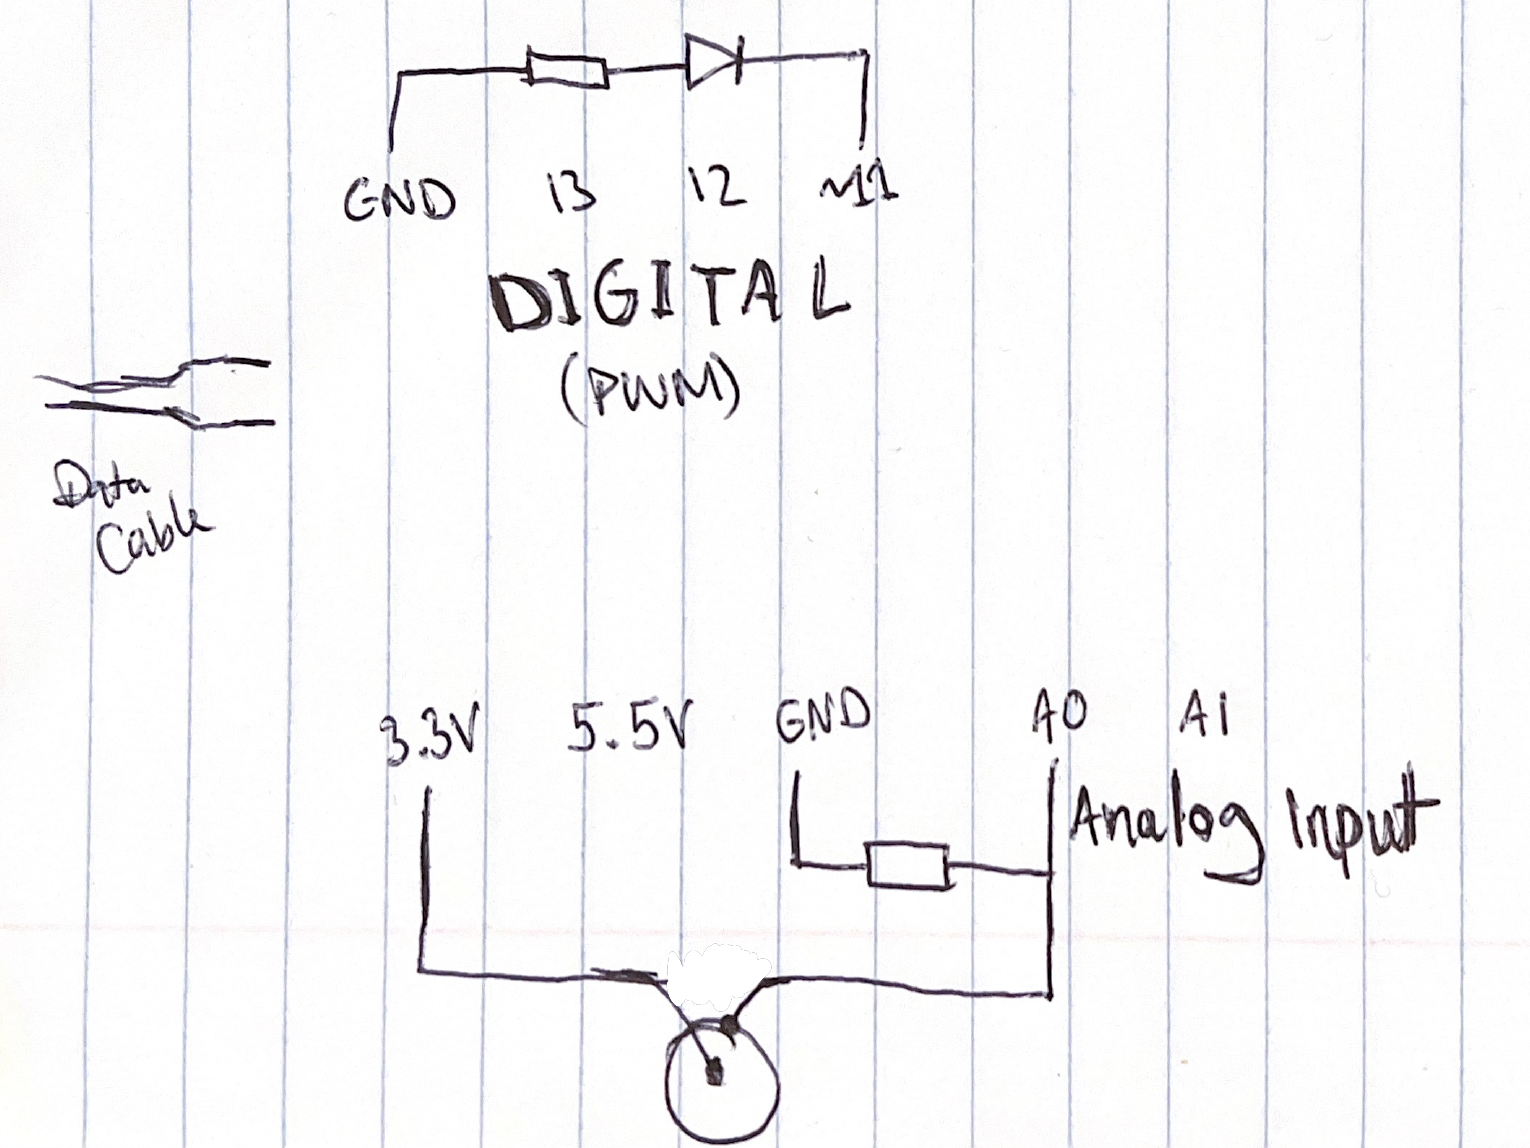 GND 13 12 ~11
DIGITAL
(PWM)
Data
Cable
3.3V 5.5V GND A0 A1
Analog Input